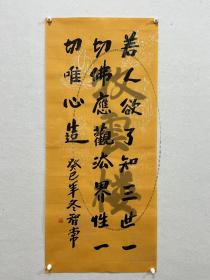 若人欲了知三世一
切佛應觀法界性一
切唯心造
癸巳年冬智常